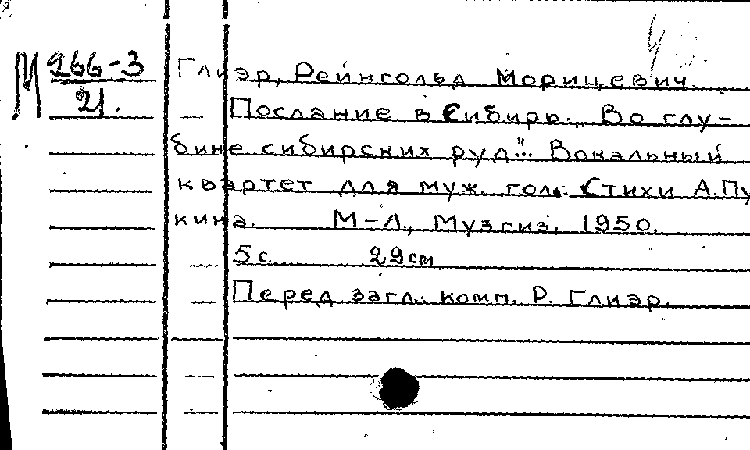 М 266-3
21.
Глиэр, Рейнгольд Морицевич.
Послание в Сибирь. „Во глу-
бине сибирских руд". Вокальный
квартет для муж. гол. Стихи А.Пу
кина. М-Л, Музгиз, 1950.
5 с. 29 см
Перед загл. комп. Р. Глиэр.